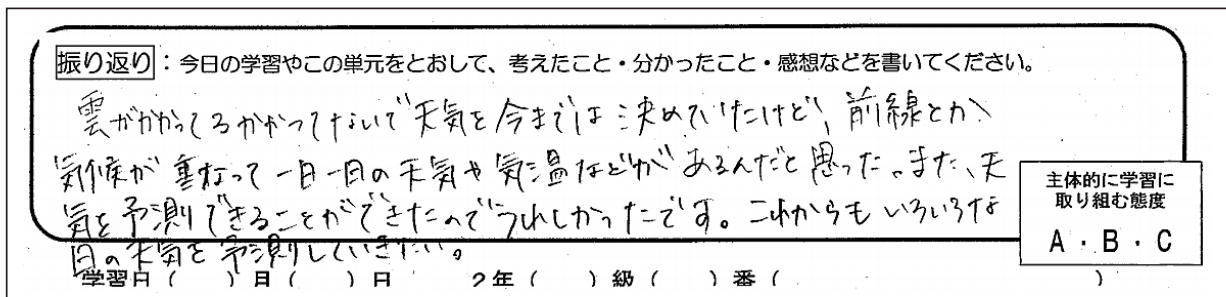 振り返り:今日の学習やこの単元をとおして、考えたこと・分かったこと・感想などを書いてください。
雲がかかってるかかかってないで天気を今までは決めていたけど、前線とか、
気候が重なって一日一日の天気や気温などがあるんだと思った。また、天
気を予測できることができたのでうれしかったです。これからもいろいろな
日の天気を予測していきたい。
主体的に学習に
取り組む態度
A・B・C
学習日( )月( )日 2年( )級( )番( )